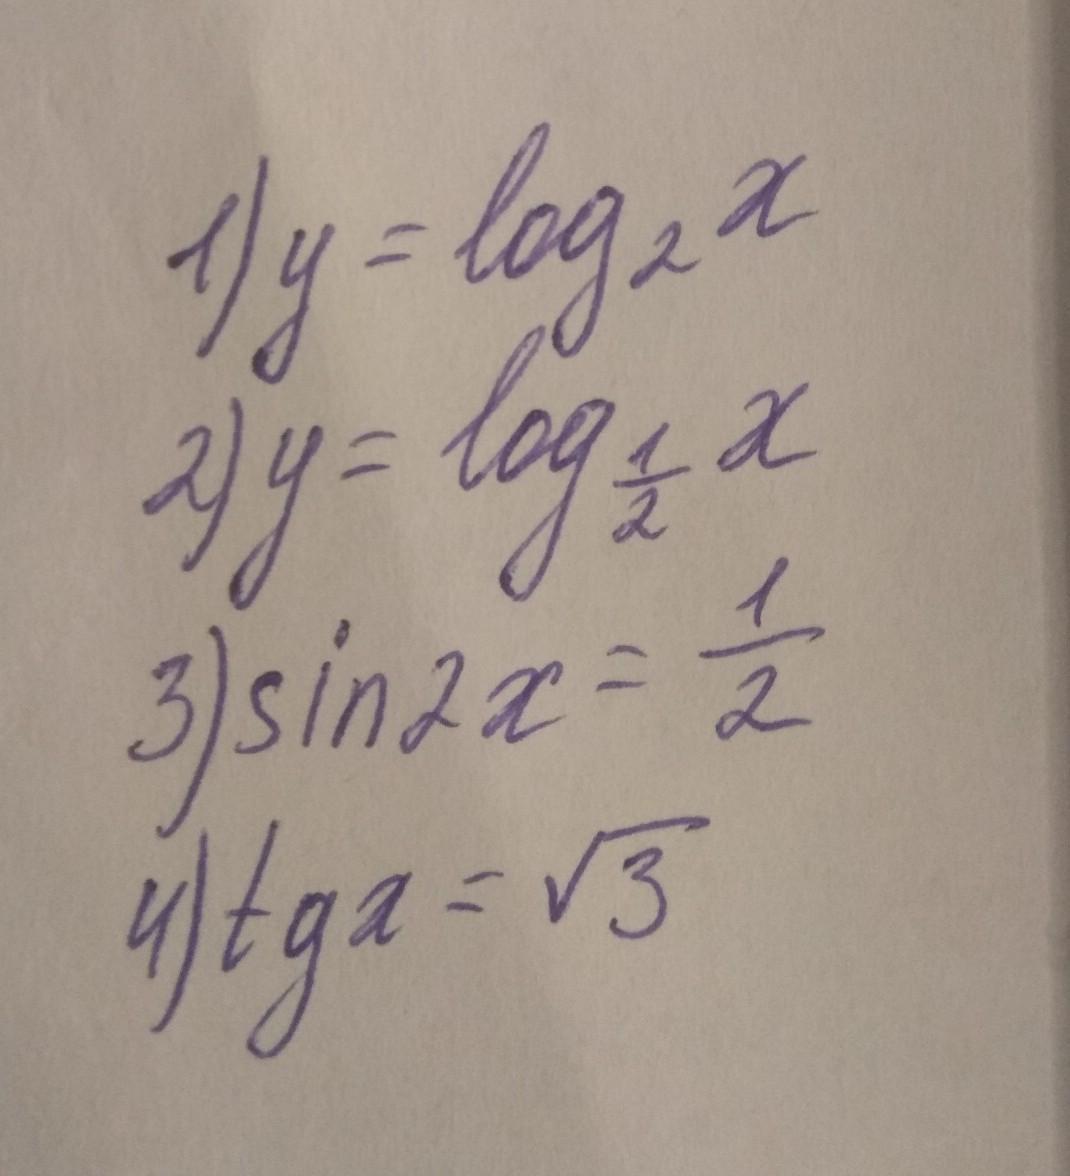 1) y = log₂ x
2) y = log_{1/2} x
3) sin2x = 1/2
4) tgx = √3